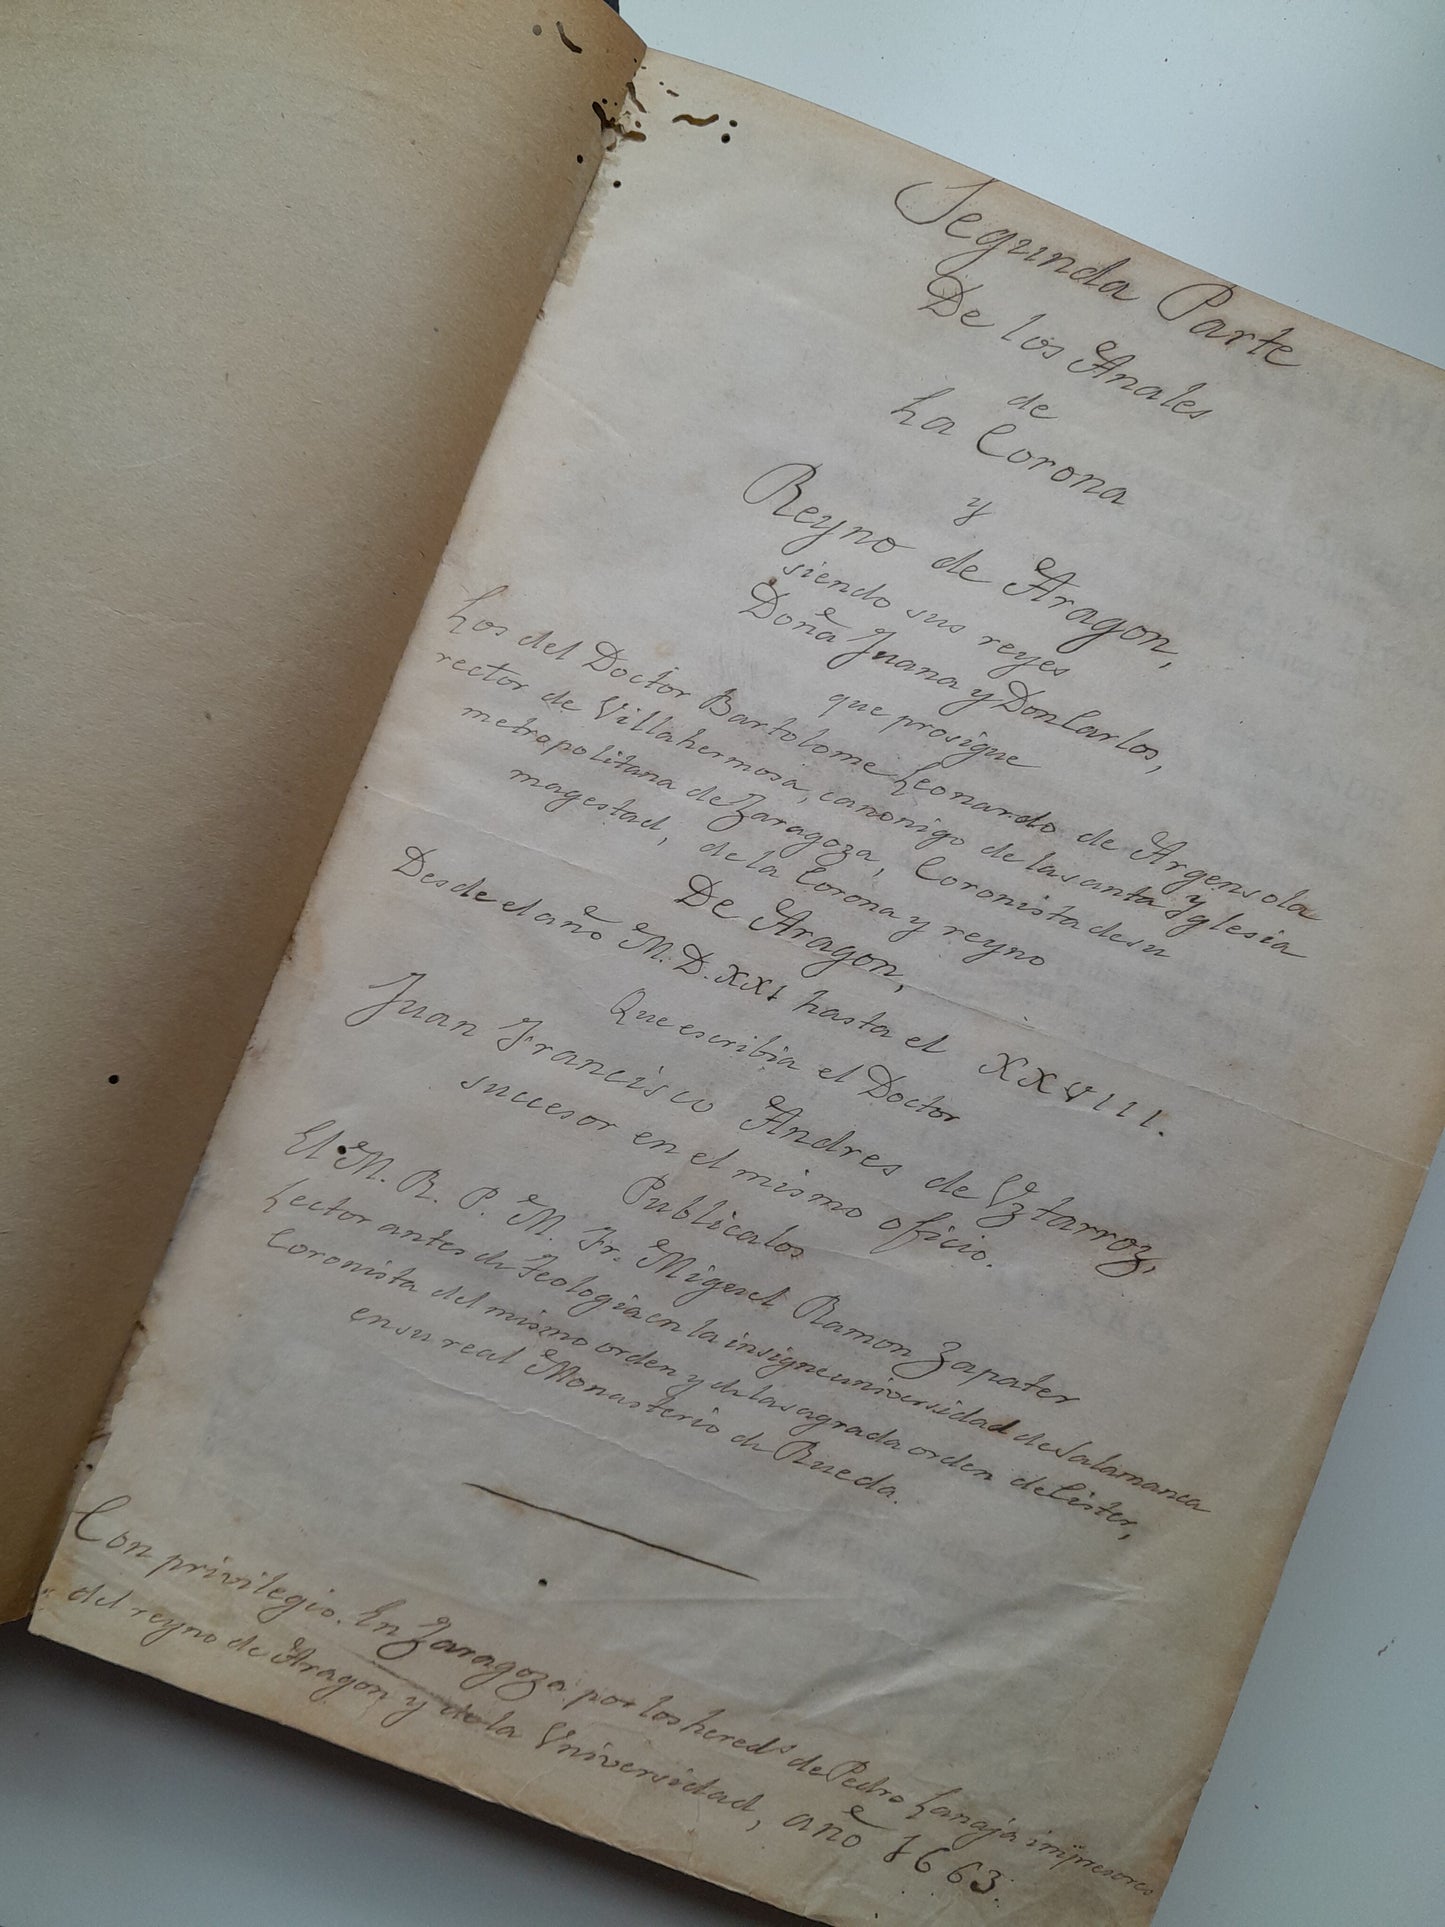 Segunda Parte
De los Anales
de
La Corona
y
Reyno de Aragon,
siendo sus reyes
Doña Juana y Don Carlos,
que prosigue
Los del Doctor Bartolome Leonardo de Argensola
rector de Villahermosa, canonigo de la santa Yglesia
metropolitana de Zaragoza, Coronista de su
magestad, de la Corona y reyno
De Aragon,
Desde el año M.D.XXI hasta el XXVIII.
Que escribia el Doctor
Juan Francisco Andres de Vztarroz,
succesor en el mismo oficio.
Publicalos
El M. R. P. M. Fr. Miguel Ramon Zapater
Lector antes de Teologia en la insigne universidad de Salamanca
Coronista del mismo orden y de la sagrada orden de Cister,
en su real Monasterio de Rueda.
Con privilegio. En Zaragoza por los hereds de Pedro Lanaja impresores
del reyno de Aragon y de la Vniversidad, año 1663.